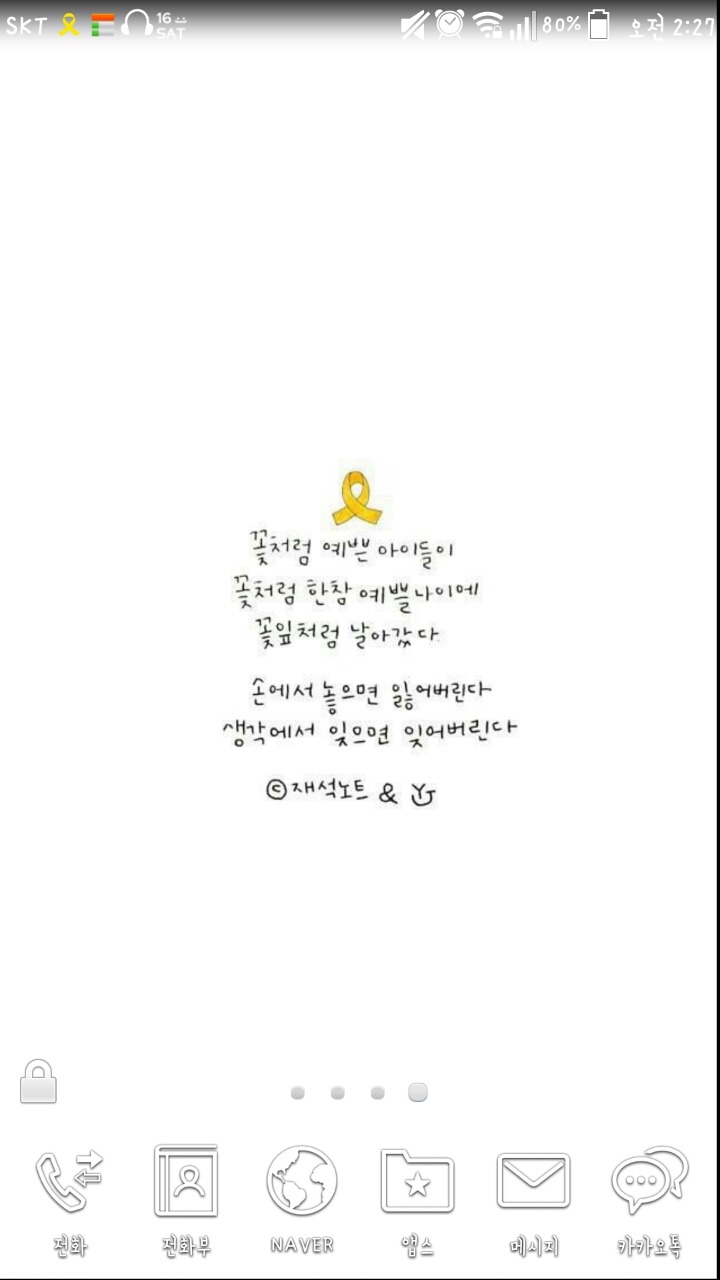 SKT 16 SAT 80% 오전 2:27
꽃처럼 예쁜 아이들이
꽃처럼 한참 예쁠 나이에
꽃잎처럼 날아갔다
손에서 놓으면 잃어버린다
생각에서 잊으면 잊어버린다
©재석노트 & YJ
전화 전화부 NAVER 앱스 메시지 카카오톡